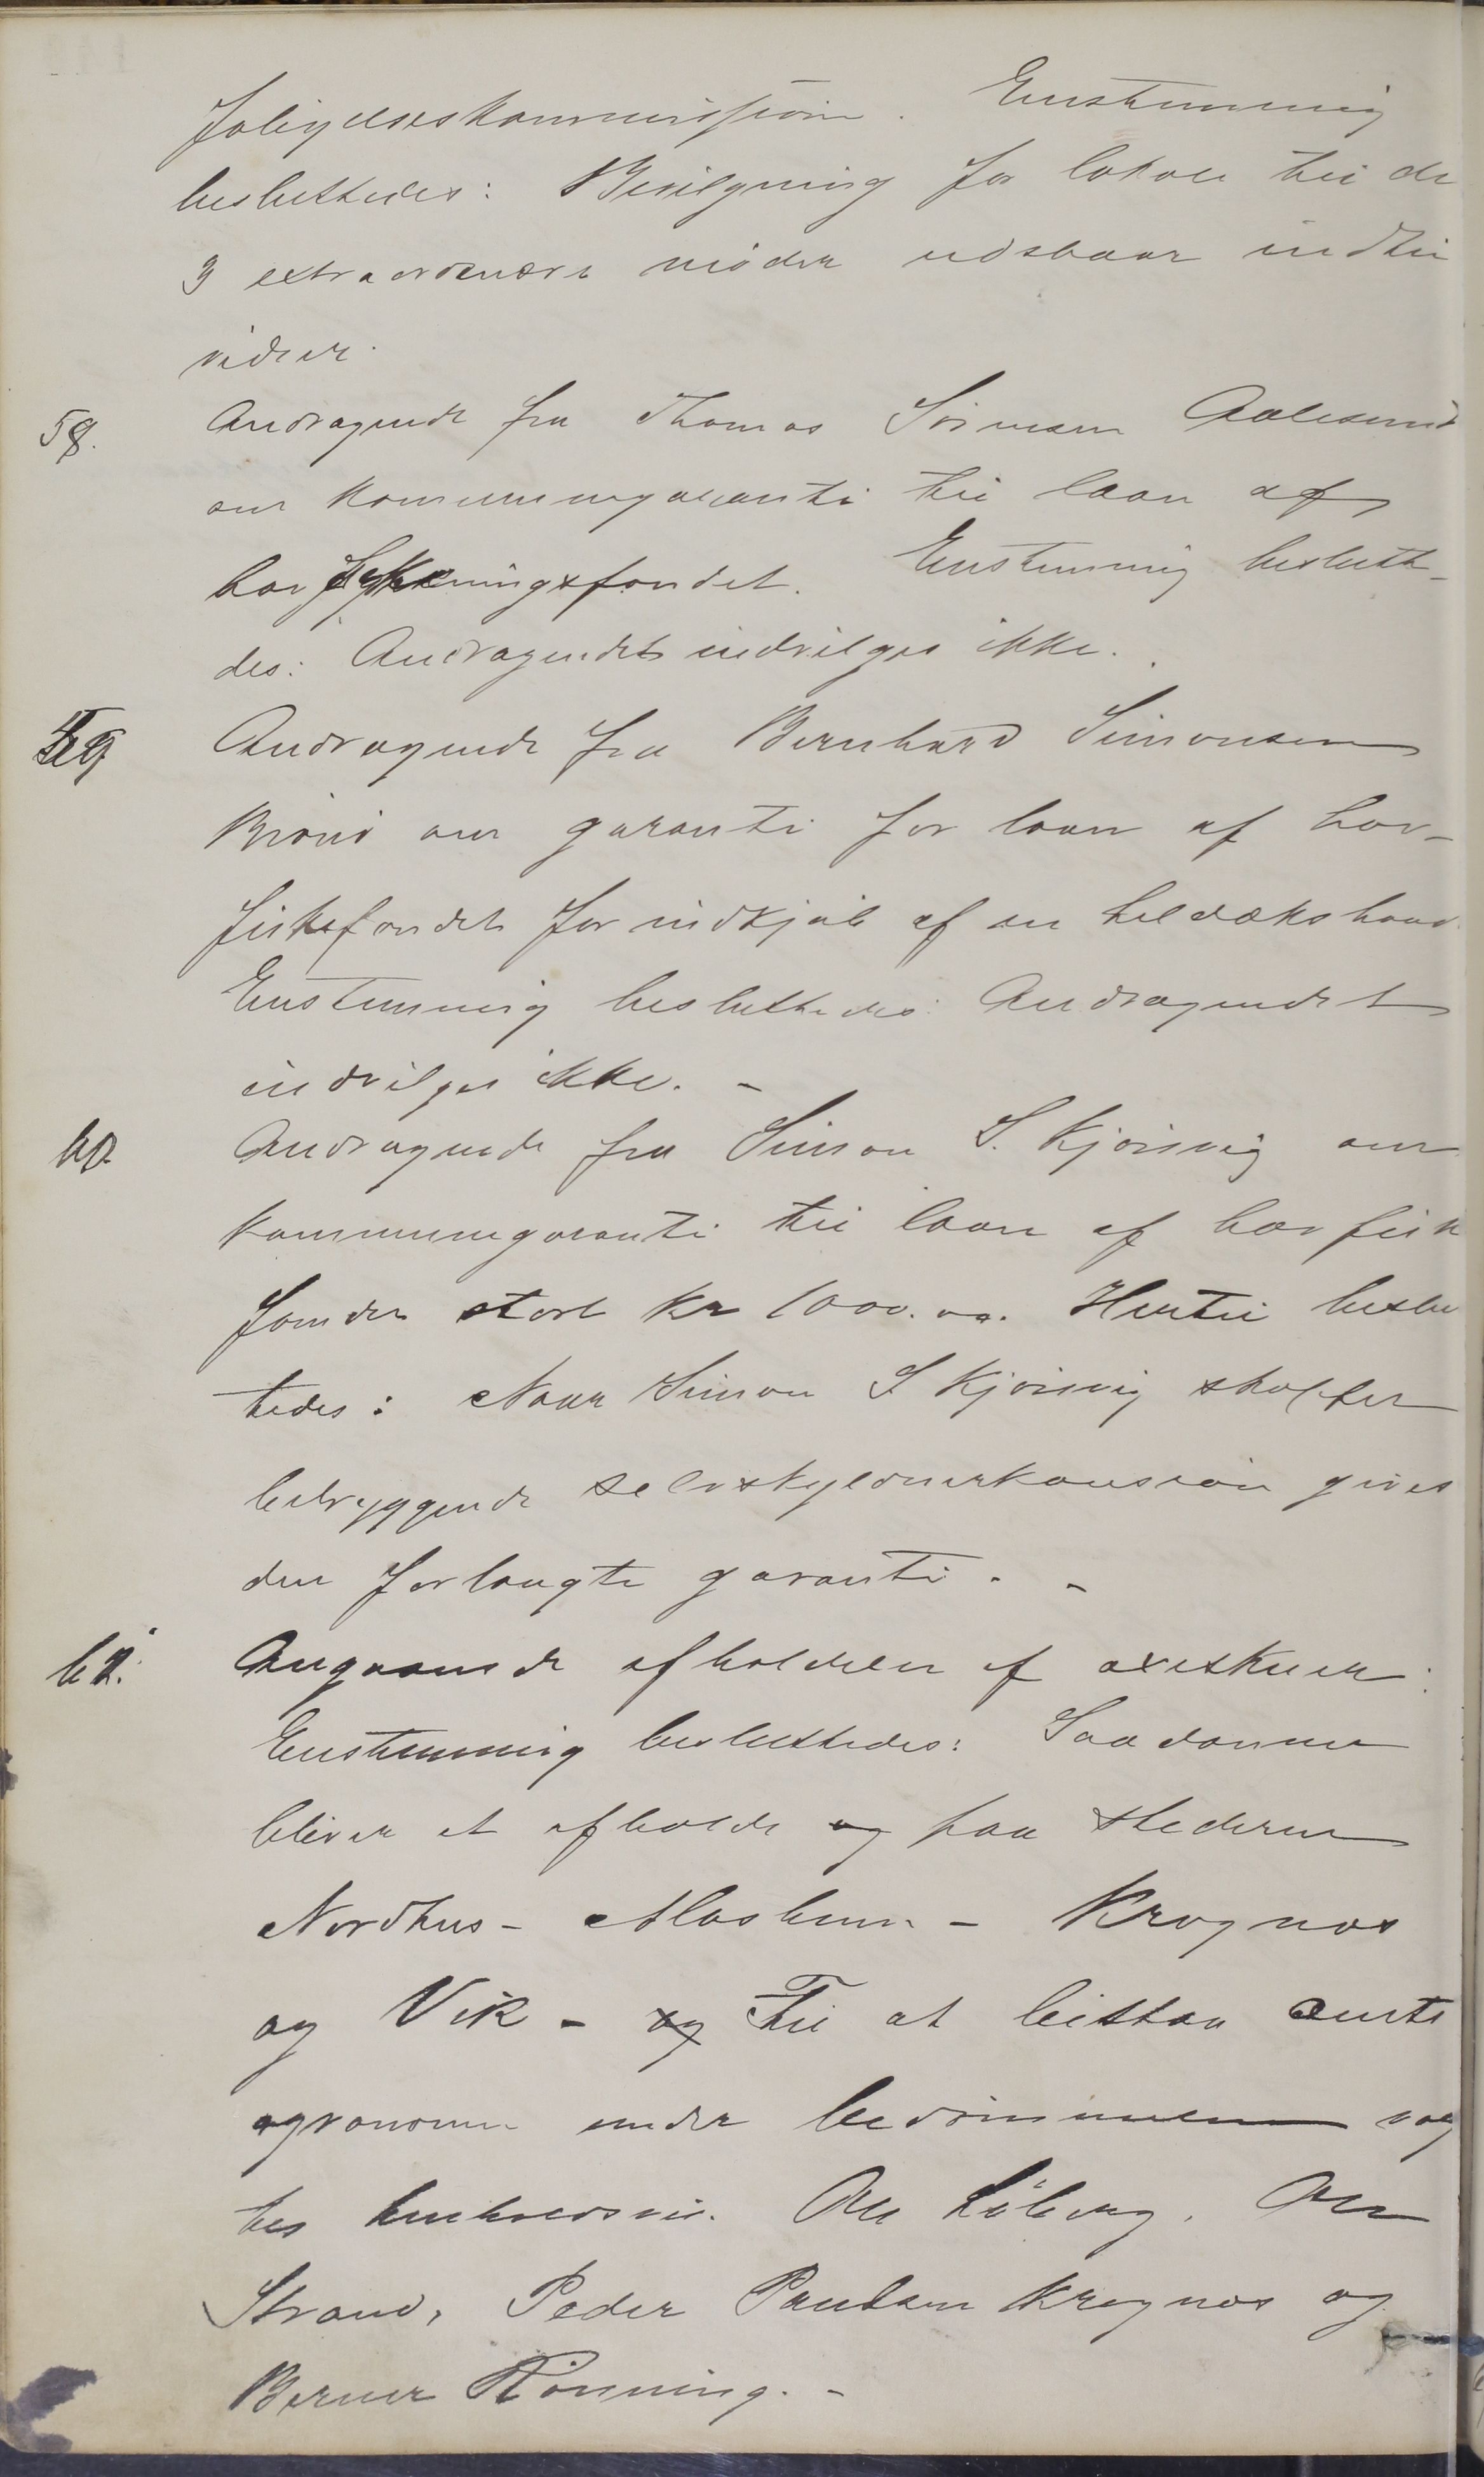 forligelseskommission. Enstemmig
besluttedes: Bevilgning for lokale til de
3 extraordenære möder udstaar indtil
videre.
58. Andragende fra Thomas Sörensen Aalesund
om Kommunegaranti til laan af
havfiskeringsfondet. Enstemmig beslutte-
des: Andragendet indvilges ikke.
59 Andragende fra Bernhard Simonsen
om garanti for laan af hav-
fiskefondet for indkjöb af en heldæksbaad.
Enstemmig besluttedes: Andragendet
indvilges ikke. -
60. Andragende fra Simon S. Kjörsvig om
Kommunegaranti til laan af havfiske
fondet stort kr 1000.00. Hertil beslut
tedes: Naar Simon S Kjörsvig skaffer
betryggende selvskyldnerkaution gives
den forlangte garanti. -
61. Angaaende afholdelse af oxeskuer:
Enstemmig besluttedes: Saadanne
bliver at afholde og paa stederne
Nordhus - - Krognæs
og Vik - og Til at bistaa amts
agronomen under bedömmelsen valg
tes Ole Löberg, Ole
Strand, Peder Paulsen Krognæs og
Berner Rönning. -